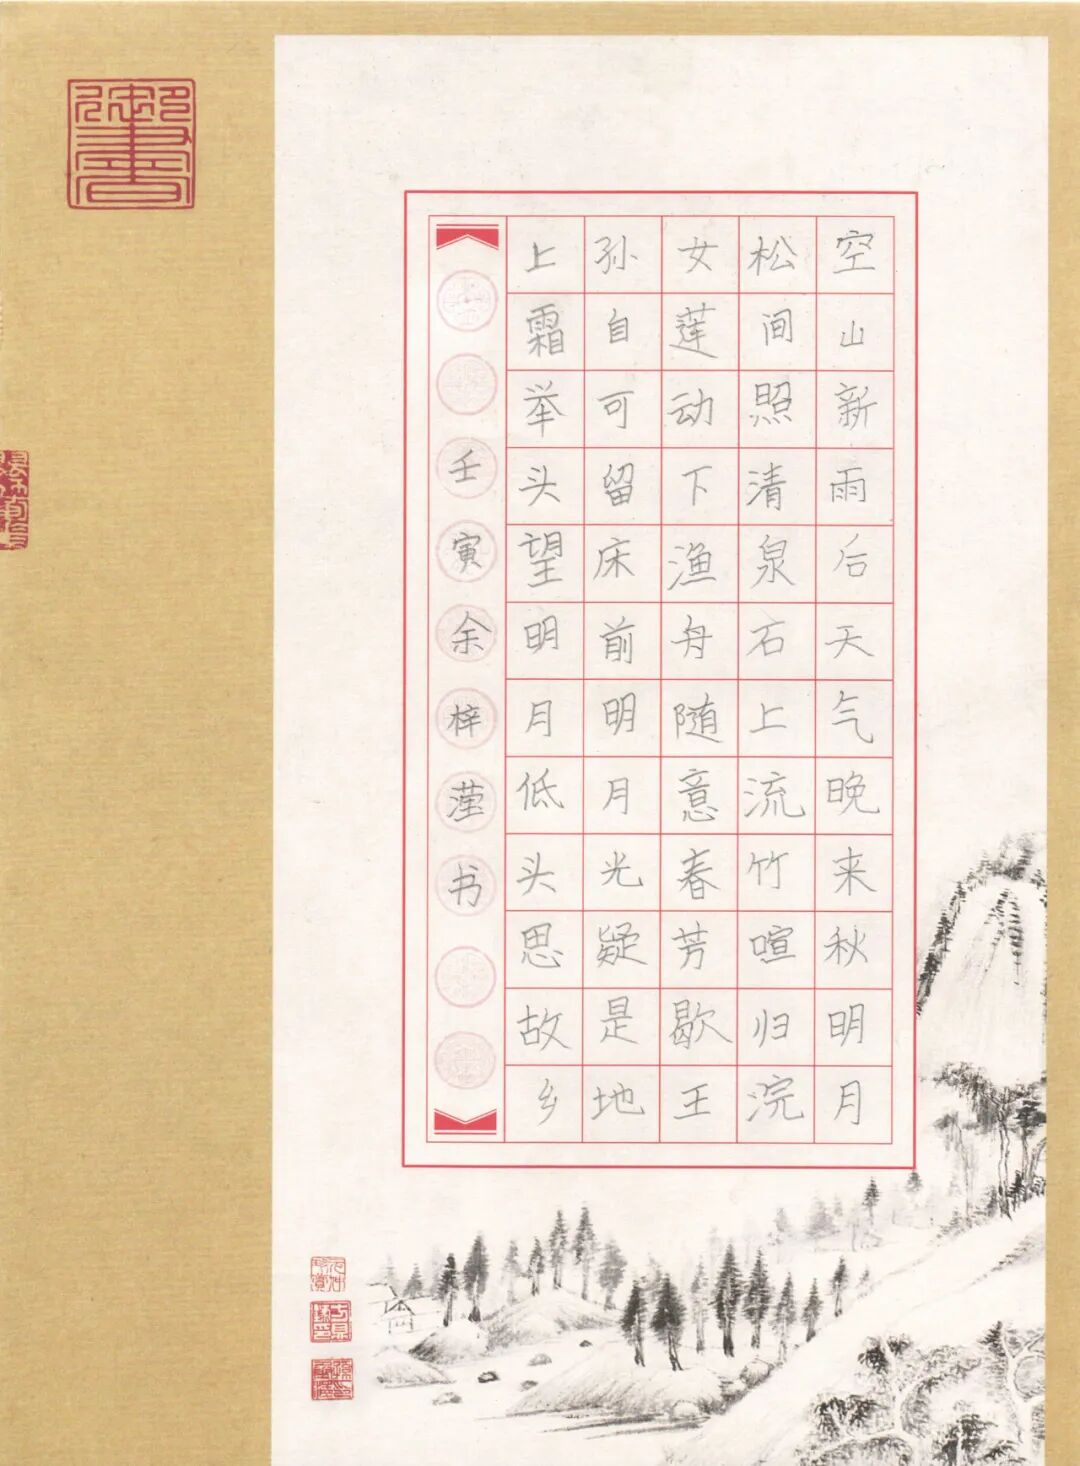 空山新雨后天气晚来秋明月
松间照清泉石上流竹喧归浣
女莲动下渔舟随意春芳歇王
孙自可留床前明月光疑是地
上霜举头望明月低头思故乡
壬寅余梓滢书